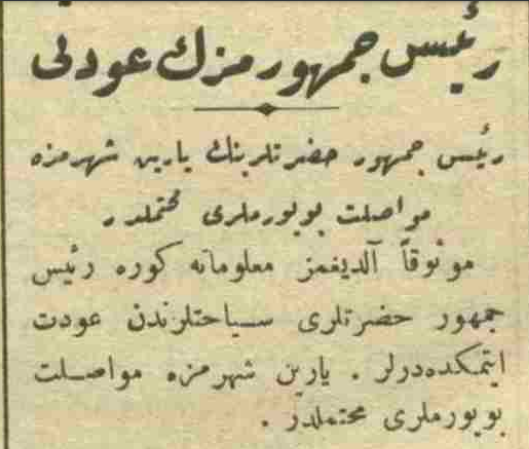 رئیس جمهورمزك عودتی
رئیس جمهور حضرتلرینك یارین شهرمزه
مواصلت بویورملری محتملدر
موثوقاً آلدیغمز معلوماته كوره رئیس
جمهور حضرتلری سیاحتلرندن عودت
ایتمكده‌درلر . یارین شهرمزه مواصلت
بویورملری محتملدر .